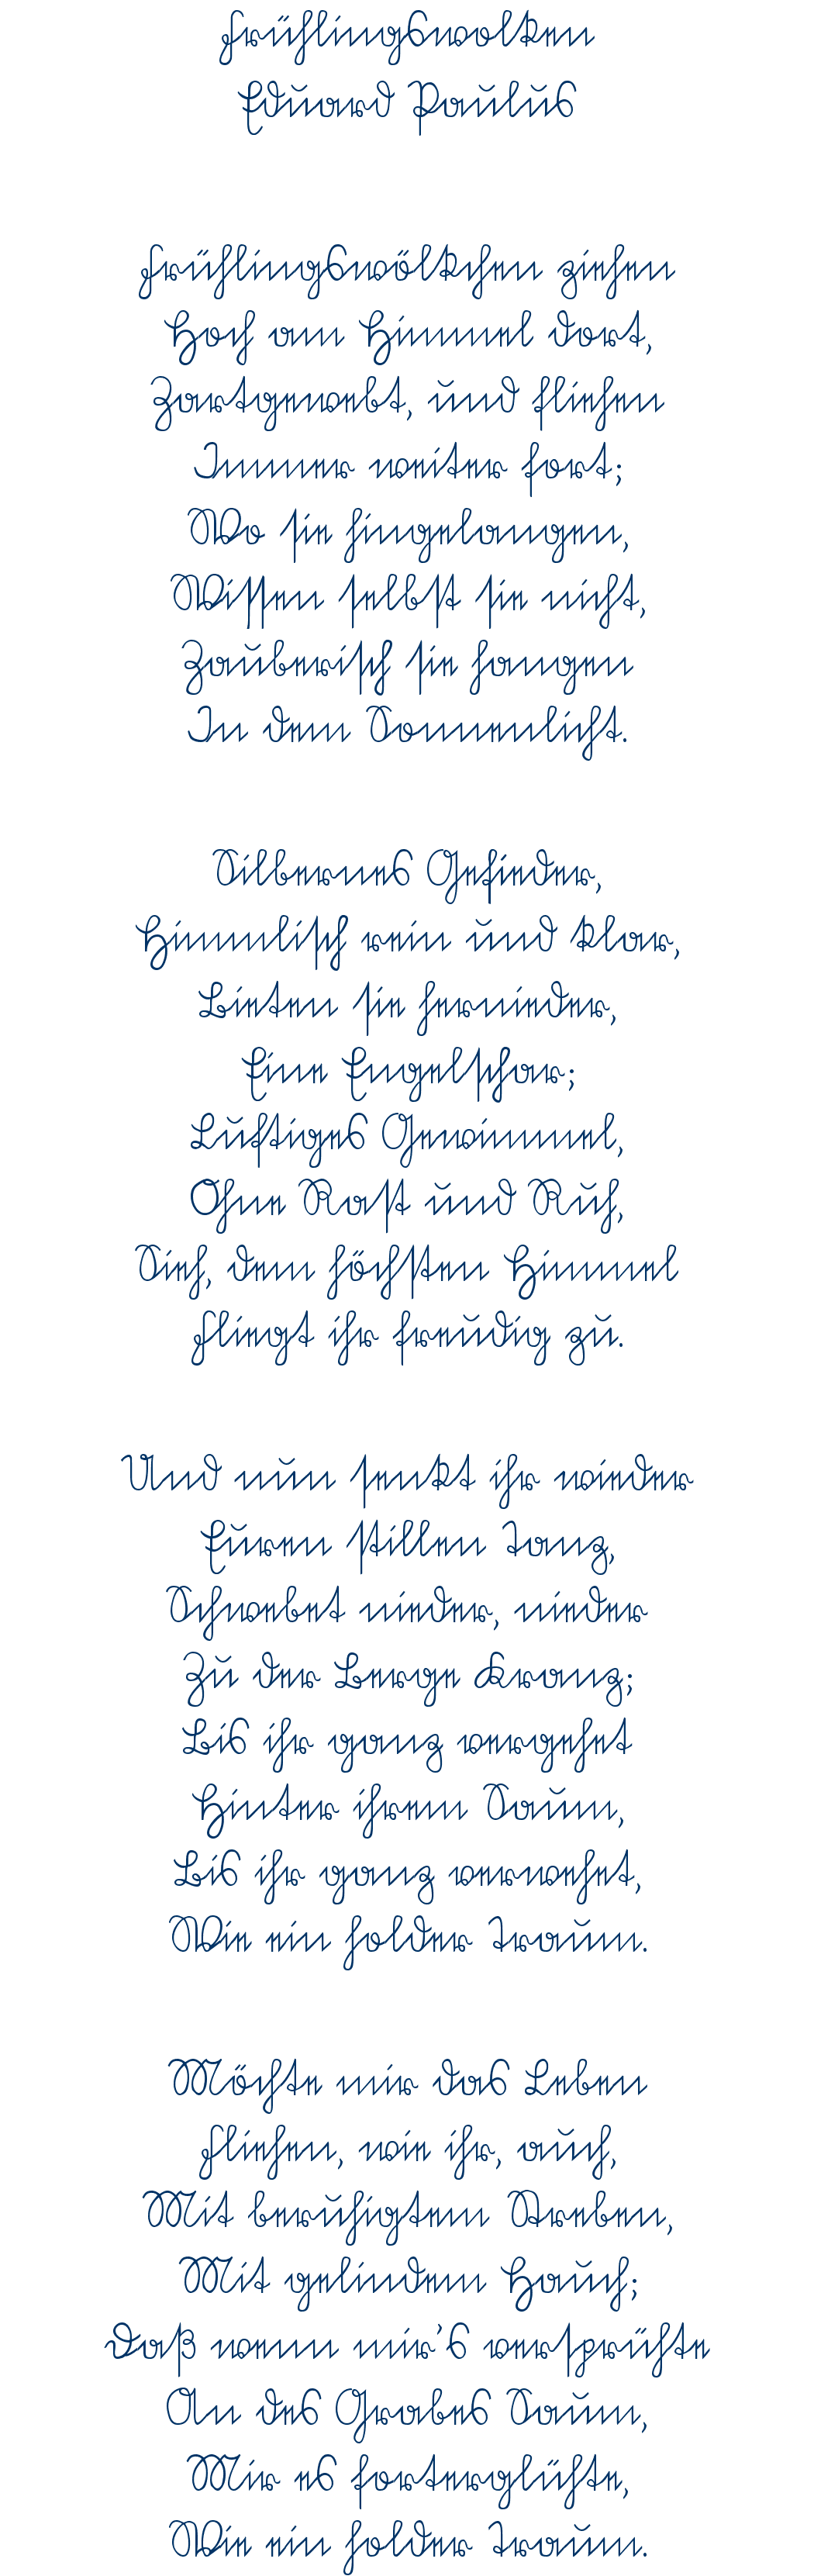 Frühlingswolken
Eduard Paulus
Frühlingswölkchen ziehen
Hoch am Himmel dort,
Zartgewebt, und fliehen
Immer weiter fort;
Wo sie hingelangen,
Wissen selbst sie nicht,
Zauberisch sie hangen
In dem Sonnenlicht.
Silbernes Gefieder,
Himmlisch rein und klar,
Bieten sie hernieder,
Eine Engelschar;
Luftiges Gewimmel,
Ohne Rast und Ruh,
Sieh, dem höchsten Himmel
Fliegt ihr freudig zu.
Und nun senkt ihr wieder
Euren stillen Tanz,
Schwebet nieder, nieder
Zu der Berge Kranz;
Bis ihr ganz vergehet
Hinter ihrem Saum,
Bis ihr ganz verwehet,
Wie ein holder Traum.
Möchte mir das Leben
Fliehen, wie ihr, auch,
Mit beruhigtem Streben,
Mit gelindem Hauch;
Daß wenn mir's versprühte
An des Grabes Saum,
Mir es forterglühte,
Wie ein holder Traum.